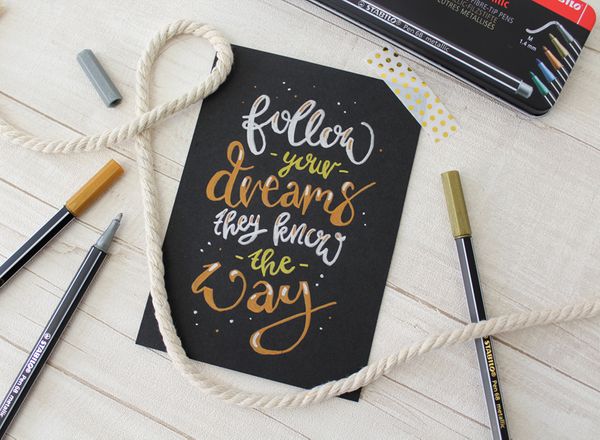 follow
- your -
dreams
they know
- the -
way
STABILO® Pen 68 metallic
STABILO
M
1.4 mm
STABILO® Pen 68 metallic
STABILO® Pen 68 metallic